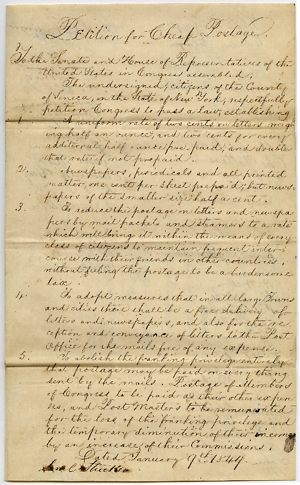 Petition for Cheap Postage.
To the Senate and House of Representatives of the
United States in Congress assembled.
The undersigned, citizens of the County
of Seneca, in the State of New York, respectfully
petition Congress to pass a law, establishing
1. A uniform rate of two cents on letters weigh
ing half an ounce, and two cents for every
additional half ounce pre-paid; and double
that rate if not prepaid.
2. Newspapers, periodicals and all printed
matter, one cent per sheet prepaid; but news-
papers of the smaller size half a cent.
3. To reduce the postage on letters and newspa
pers by mail packets and steamers to a rate
which will bring it within the means of every
class of citizens to maintain frequent inter
course with their friends in other countries
without feeling the postage to be a burdensome
tax.
4. To adopt measures that in all large Towns
and cities there shall be a free delivery of
letters and newspapers, and also for the re
ception and conveyance of letters to the Post
Office for the mails, free of any expense.
5. To abolish the franking privilege entirely
that postage may be paid on every thing
sent by the mails. Postage of Members
of Congress to be paid as their other expen
ses, and Post Masters to be remunerated
for the loss of the franking privilege and
the temporary diminution of their income
by an increase of their Commissions.
Dated January 9th 1849.